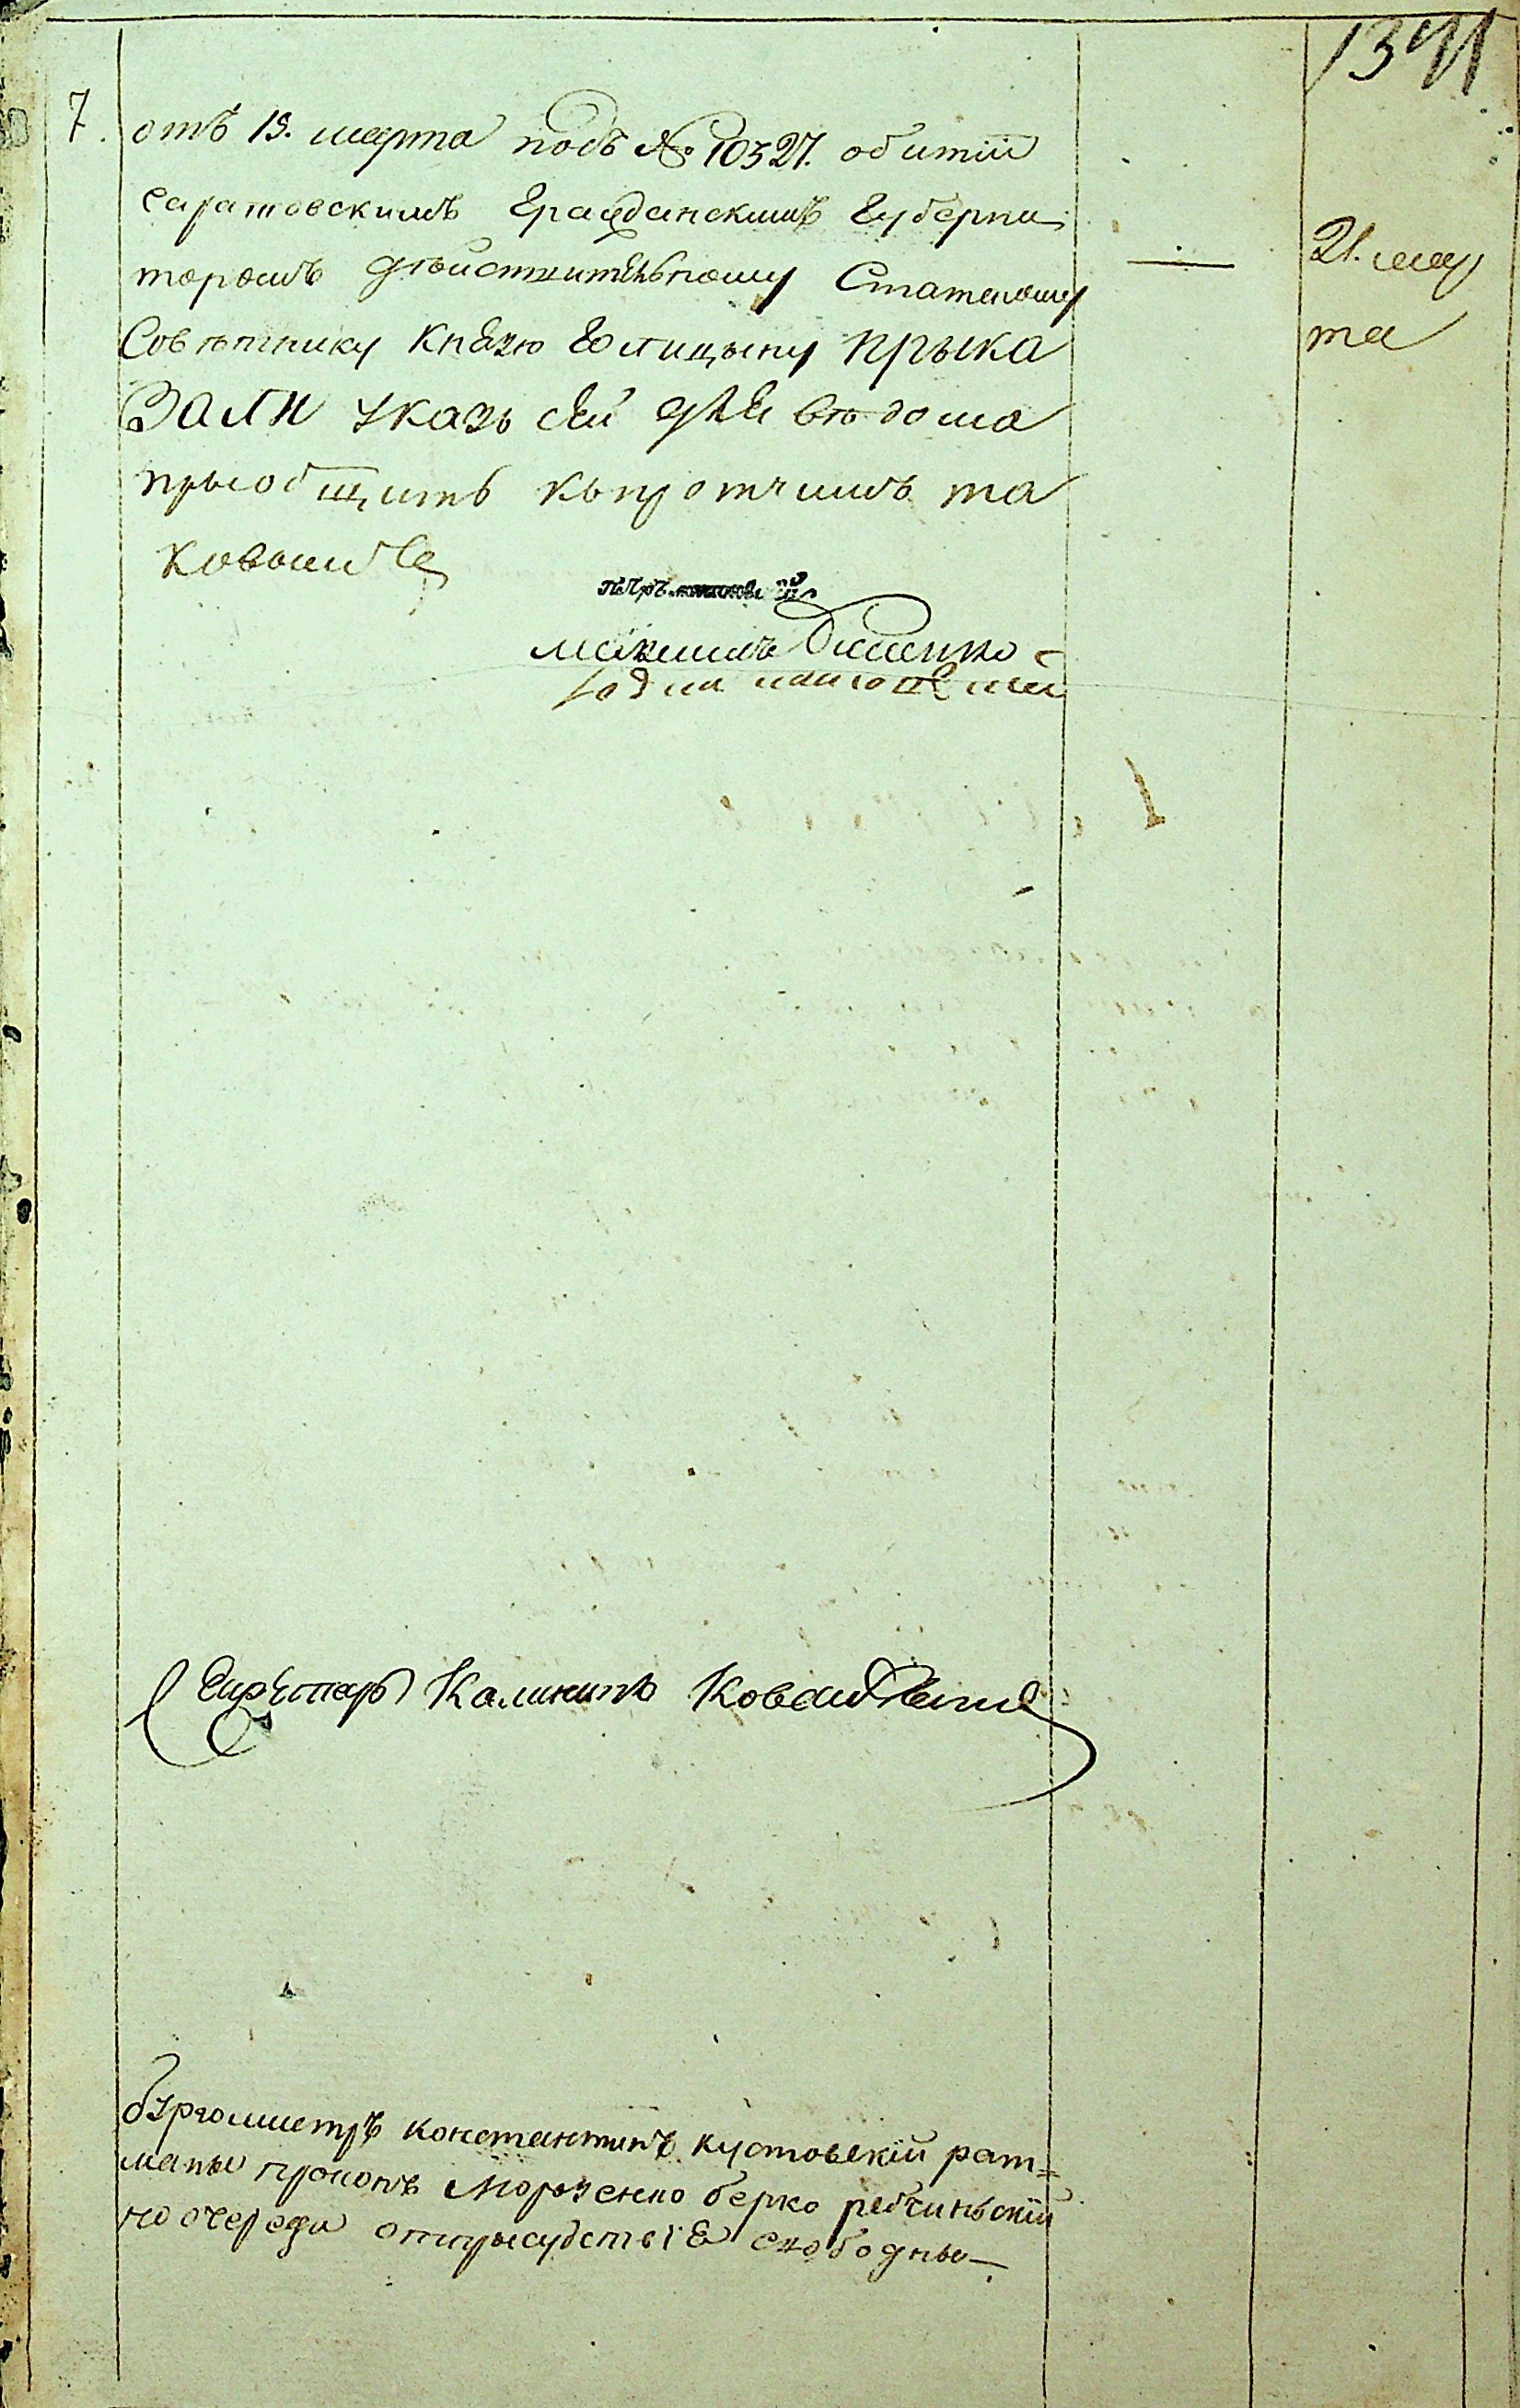 134
7. отъ 13. марта подъ № 10327. обитіи
саратовскимъ Гражданскимъ Губерна
торомъ дѣйствительному Статскому
Совѣтнику Князю Голицыну прыка
зали указъ сей для вѣдома
прыобщить къ протчимъ та
ковымъ же
21. мар
та
максимъ
Секретарь Калиникъ
бургомистръ константинъ кустовскій рат=
маны прокопъ Морозенко берко
по очереди отпрысудствіе свободны